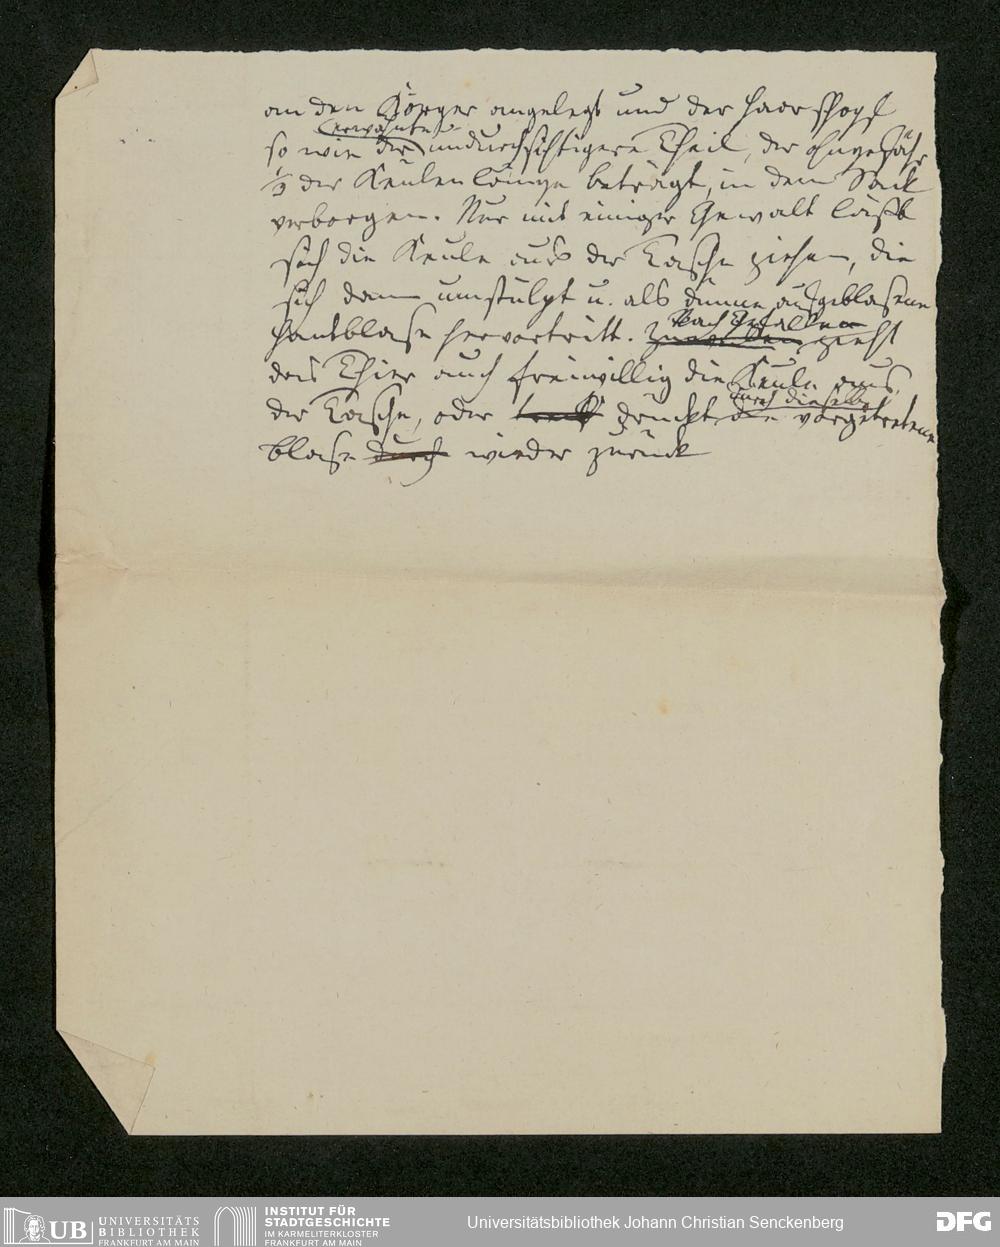 an den Körper angelegt und der Haarschopf
so wie der erwähnte undurchsichtigere Theil, der ohngefähr
1/3 der Keulenlänge beträgt, in dem Sack
verborgen. Nur mit einiger Gewalt läßt
sich die Keule aus der Tasche ziehen, die
sich dann umstülpt u. als dünne aufgeblasene
Hautblase hervortritt. Nach Gefallen zieht
das Thier auch freiwillig die Keule aus
der Tasche, oder drückt durch dieselbe die vorgetretene
Blase wieder zurück
UB UNIVERSITÄTS
BIBLIOTHEK
FRANKFURT AM MAIN
INSTITUT FÜR
STADTGESCHICHTE
IM KARMELITERKLOSTER
FRANKFURT AM MAIN
Universitätsbibliothek Johann Christian Senckenberg
DFG